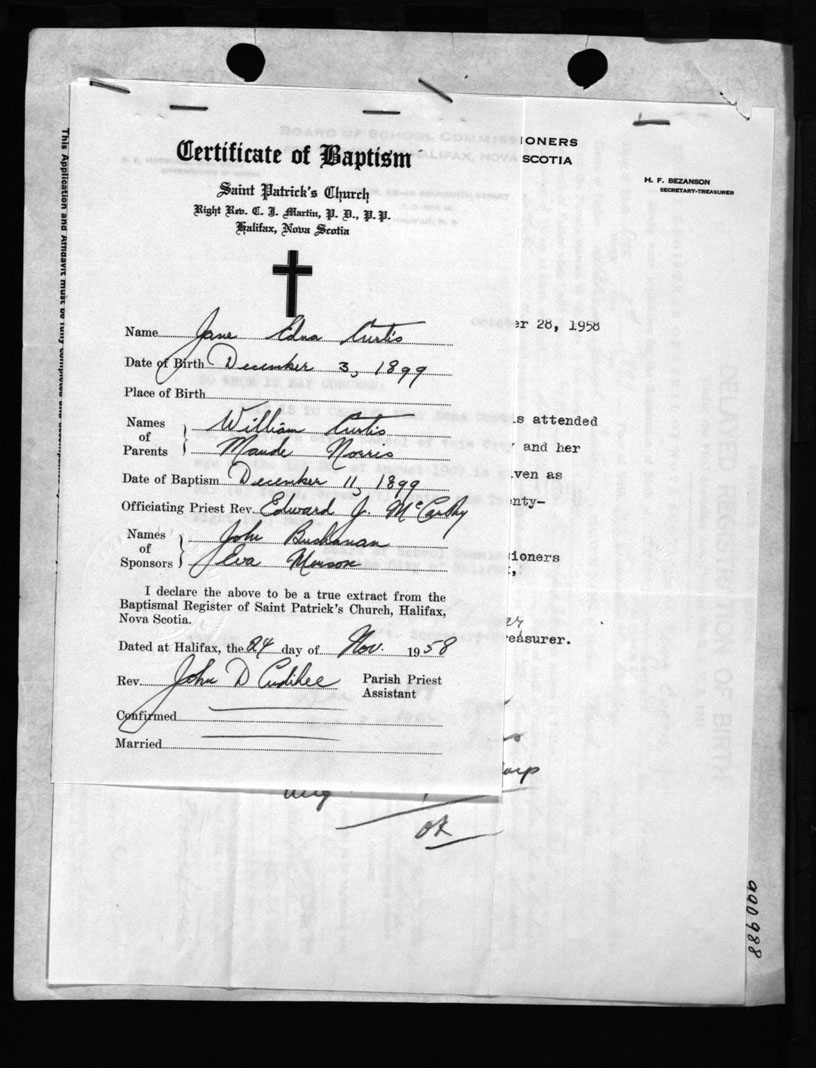 Certificate of Baptism
Saint Patrick's Church
Right Rev. C. J. Martin, P. D., P. P.
Halifax, Nova Scotia
Name Jane Edna Curtis
Date of Birth December 3, 1899
Place of Birth
Names of Parents William Curtis
Maude Norris
Date of Baptism December 11, 1899
Officiating Priest Rev. Edward J. McCarthy
Names of Sponsors John Buchanan
Eva
I declare the above to be a true extract from the
Baptismal Register of Saint Patrick's Church, Halifax,
Nova Scotia.
Dated at Halifax, the 24 day of Nov. 1958
Rev. John D Cudihee Parish Priest
Assistant
Confirmed
Married
IONERS
SCOTIA
H. F. BEZANSON
SECRETARY-TREASURER
er 28, 1958
is attended
and her
ven as
nty-
ioners
reasurer.
OK
This Application and Affidavit must be fully completed and
990988